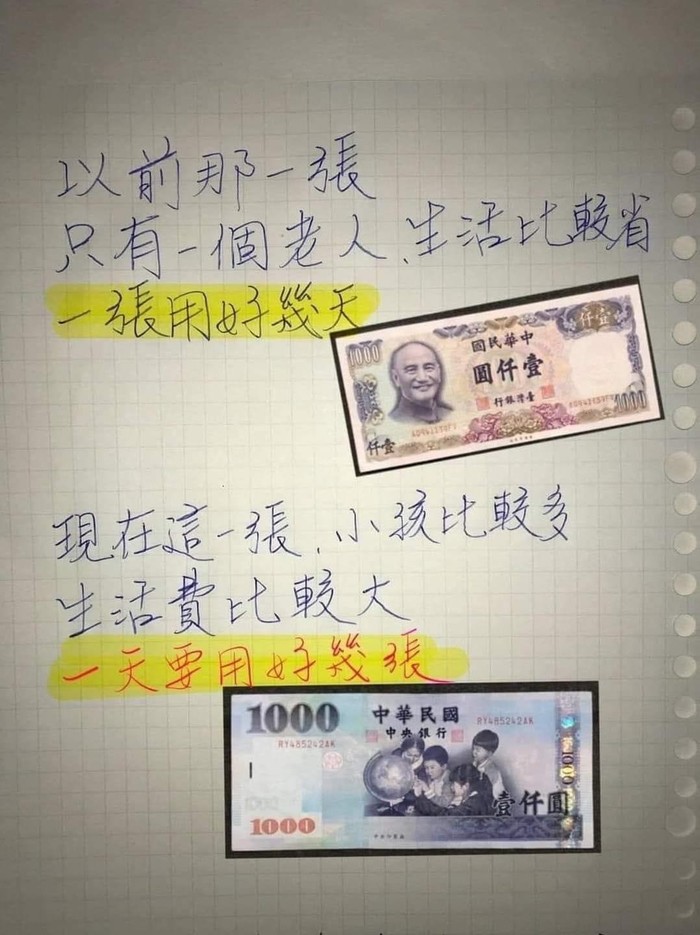 以前那一張
只有一個老人、生活比較省
一張用好幾天
1000
中華民國
仟壹
壹仟圓
臺灣銀行
仟壹
1000
現在這一張、小孩比較多
生活費比較大
一天要用好幾張
1000
中華民國
中央銀行
RY485242AK
RY485242AK
1000
壹仟圓
1000